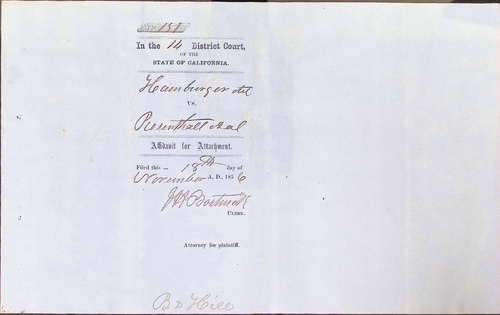 151
In the 14 District Court,
OF THE
STATE OF CALIFORNIA.
Hamburger et al
VS.
Rosenthall et al
Affidavit for Attachment.
Filed this 18th day of
November A. D., 1856
Clerk.
Attorney for plaintiff.
B D Hill